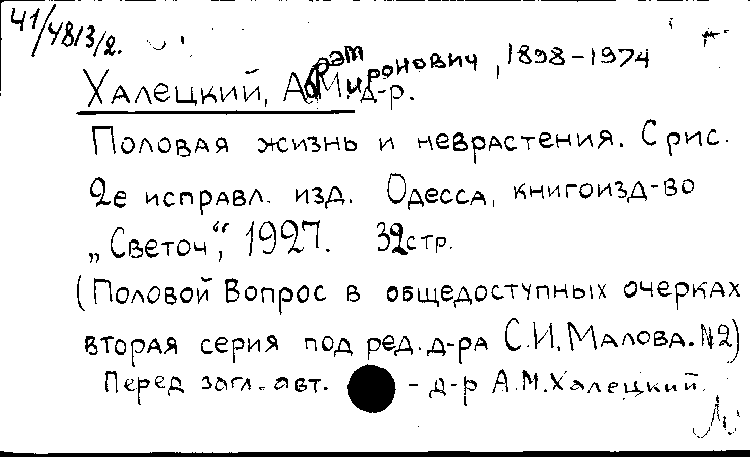 41/4813/2.
Халецкий, Абрам Миронович, 1898-1974
д-р.
Половая жизнь и неврастения. С рис.
2е исправл. изд. Одесса, книгоизд-во
„Светоч“, 1927. 32стр.
(Половой Вопрос в общедоступных очерках
вторая серия под ред. д-ра С.И. Малова. №2)
Перед загл. авт. – д-р А.М. Халецкий.